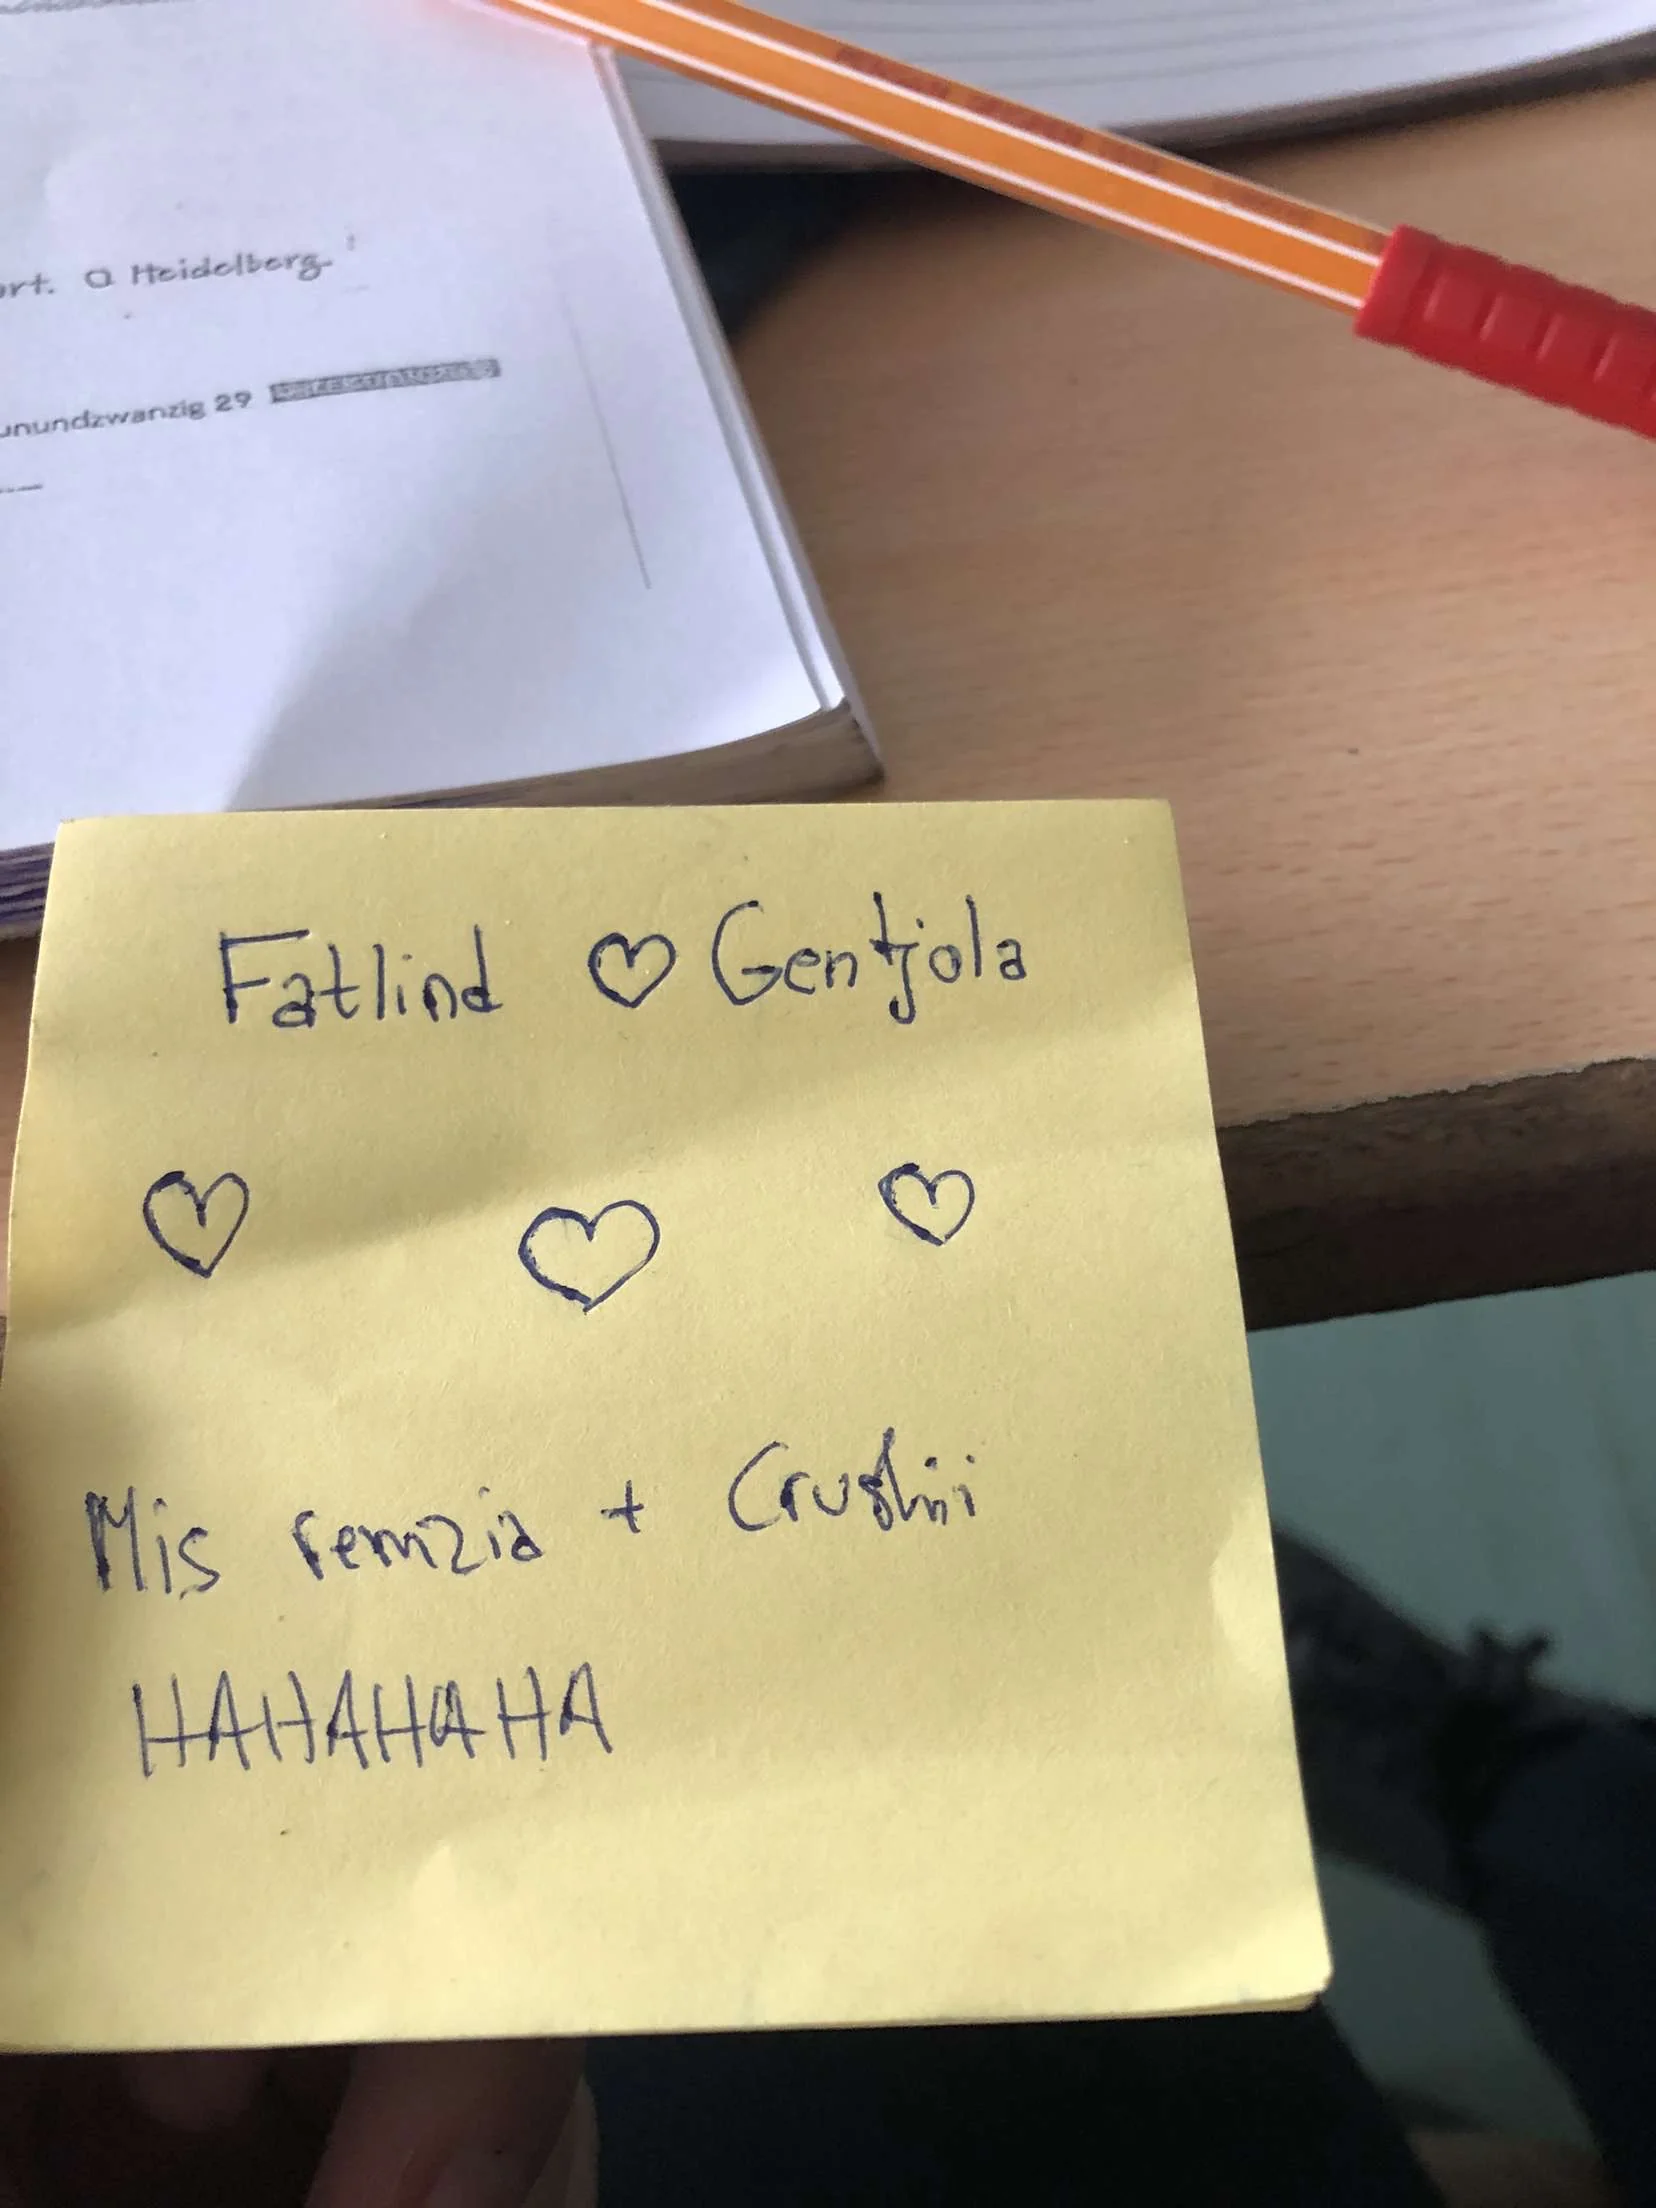 ort. O Heidelberg.
unundzwanzig 29
Fatlind ♡ Gentjola
♡ ♡ ♡
Mis remzia + Crushii
HAHAHAHA